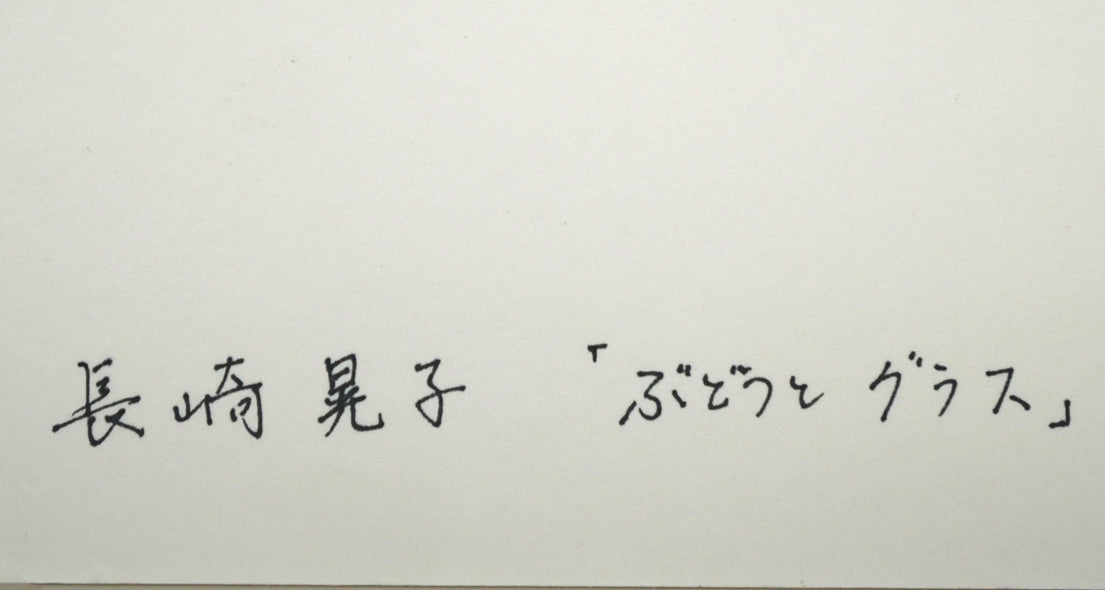 長崎 晃子 「ぶどうと グラス」